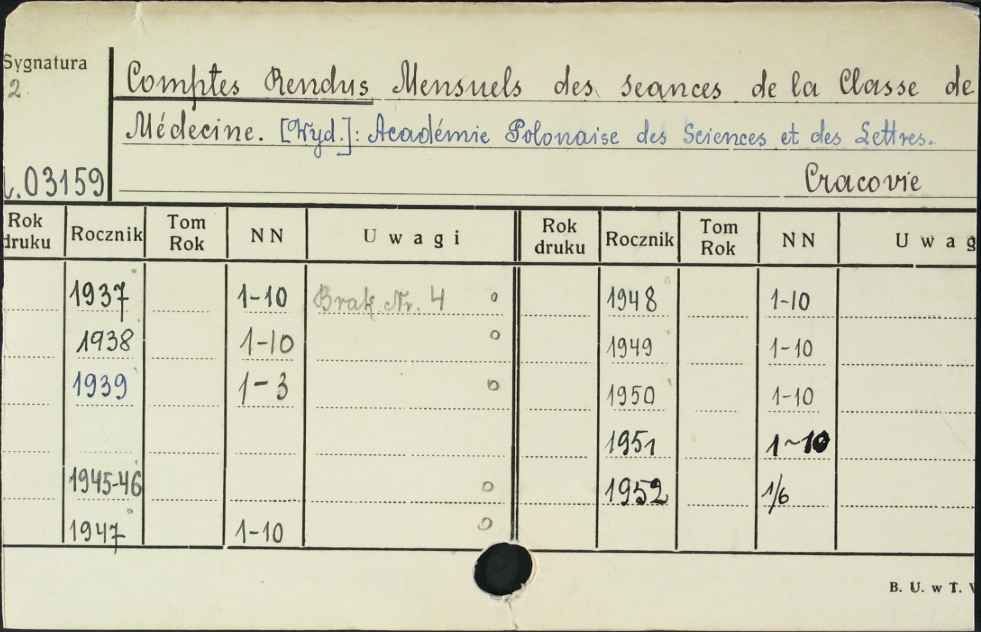 Sygnatura
2
Comptes Rendus Mensuels des seances de la Classe de
Médecine. [Wyd.]: Académie Polonaise des Sciences et des Lettres.
.03159 Cracovie
Rok druku Rocznik Tom Rok NN Uwagi Rok druku Rocznik Tom Rok NN Uwag
1937 1-10 Brak Nr. 4 1948 1-10
1938 1-10 1949 1-10
1939 1-3 1950 1-10
1951 1-10
1945-46 1952 1/6
1947 1-10
B. U. w T.